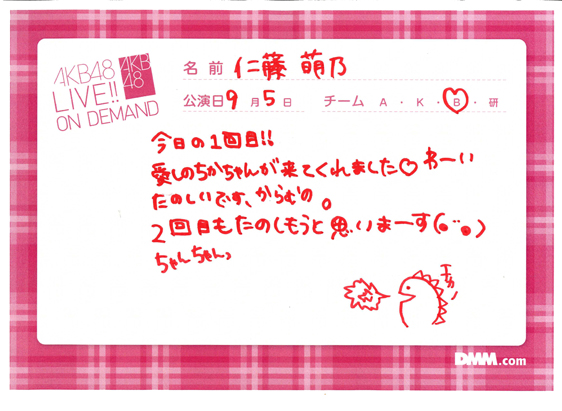 AKB48
LIVE!!
ON DEMAND
AKB
48
名前 仁藤 萌乃
公演日 9月5日 チーム A・K・B・研
今日の1回目!!
愛しのちかちゃんが来てくれました♡ わーい
たのしいです、からむの。
2回目もたのしもうと思いまーす(•¨•)
ちゃんちゃんっ
DMM.com